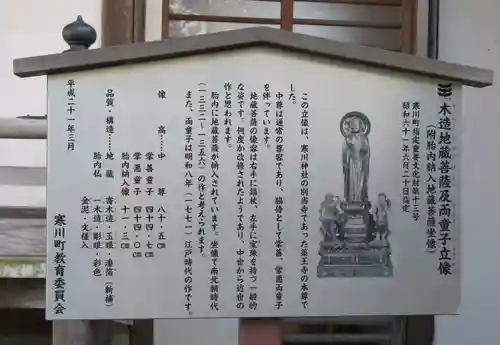 木造地蔵菩薩及両童子立像
(附胎内納入地蔵菩薩坐像)
寒川町指定重要文化財第十三号
昭和六十一年六月二十日指定
この立像は、寒川神社の別当寺であった薬王寺の本尊で
した。
中尊は通常の尊容であり、脇侍として掌善、掌悪両童子
を伴っています。
地蔵菩薩の像容は右手に錫杖、左手に宝珠を持つ一般的
な姿です。何度か改修されたようであり、中世から近世の
作と思われます。
胎内に地蔵菩薩が納入されています。坐像で南北朝時代
(一三三二~一三五六)の作と考えられます。
また、両童子は明和八年(一七七一)江戸時代の作です。
像高……中尊 八十・五㎝
掌善童子 四十四・七㎝
掌悪童子 四十四・〇㎝
胎内納入像 十一・三㎝
品質・構造……地蔵 寄木造・玉眼・漆箔(新補)
胎内仏 一木造・彫眼・彩色
金泥・文様入
平成二十一年三月
寒川町教育委員会